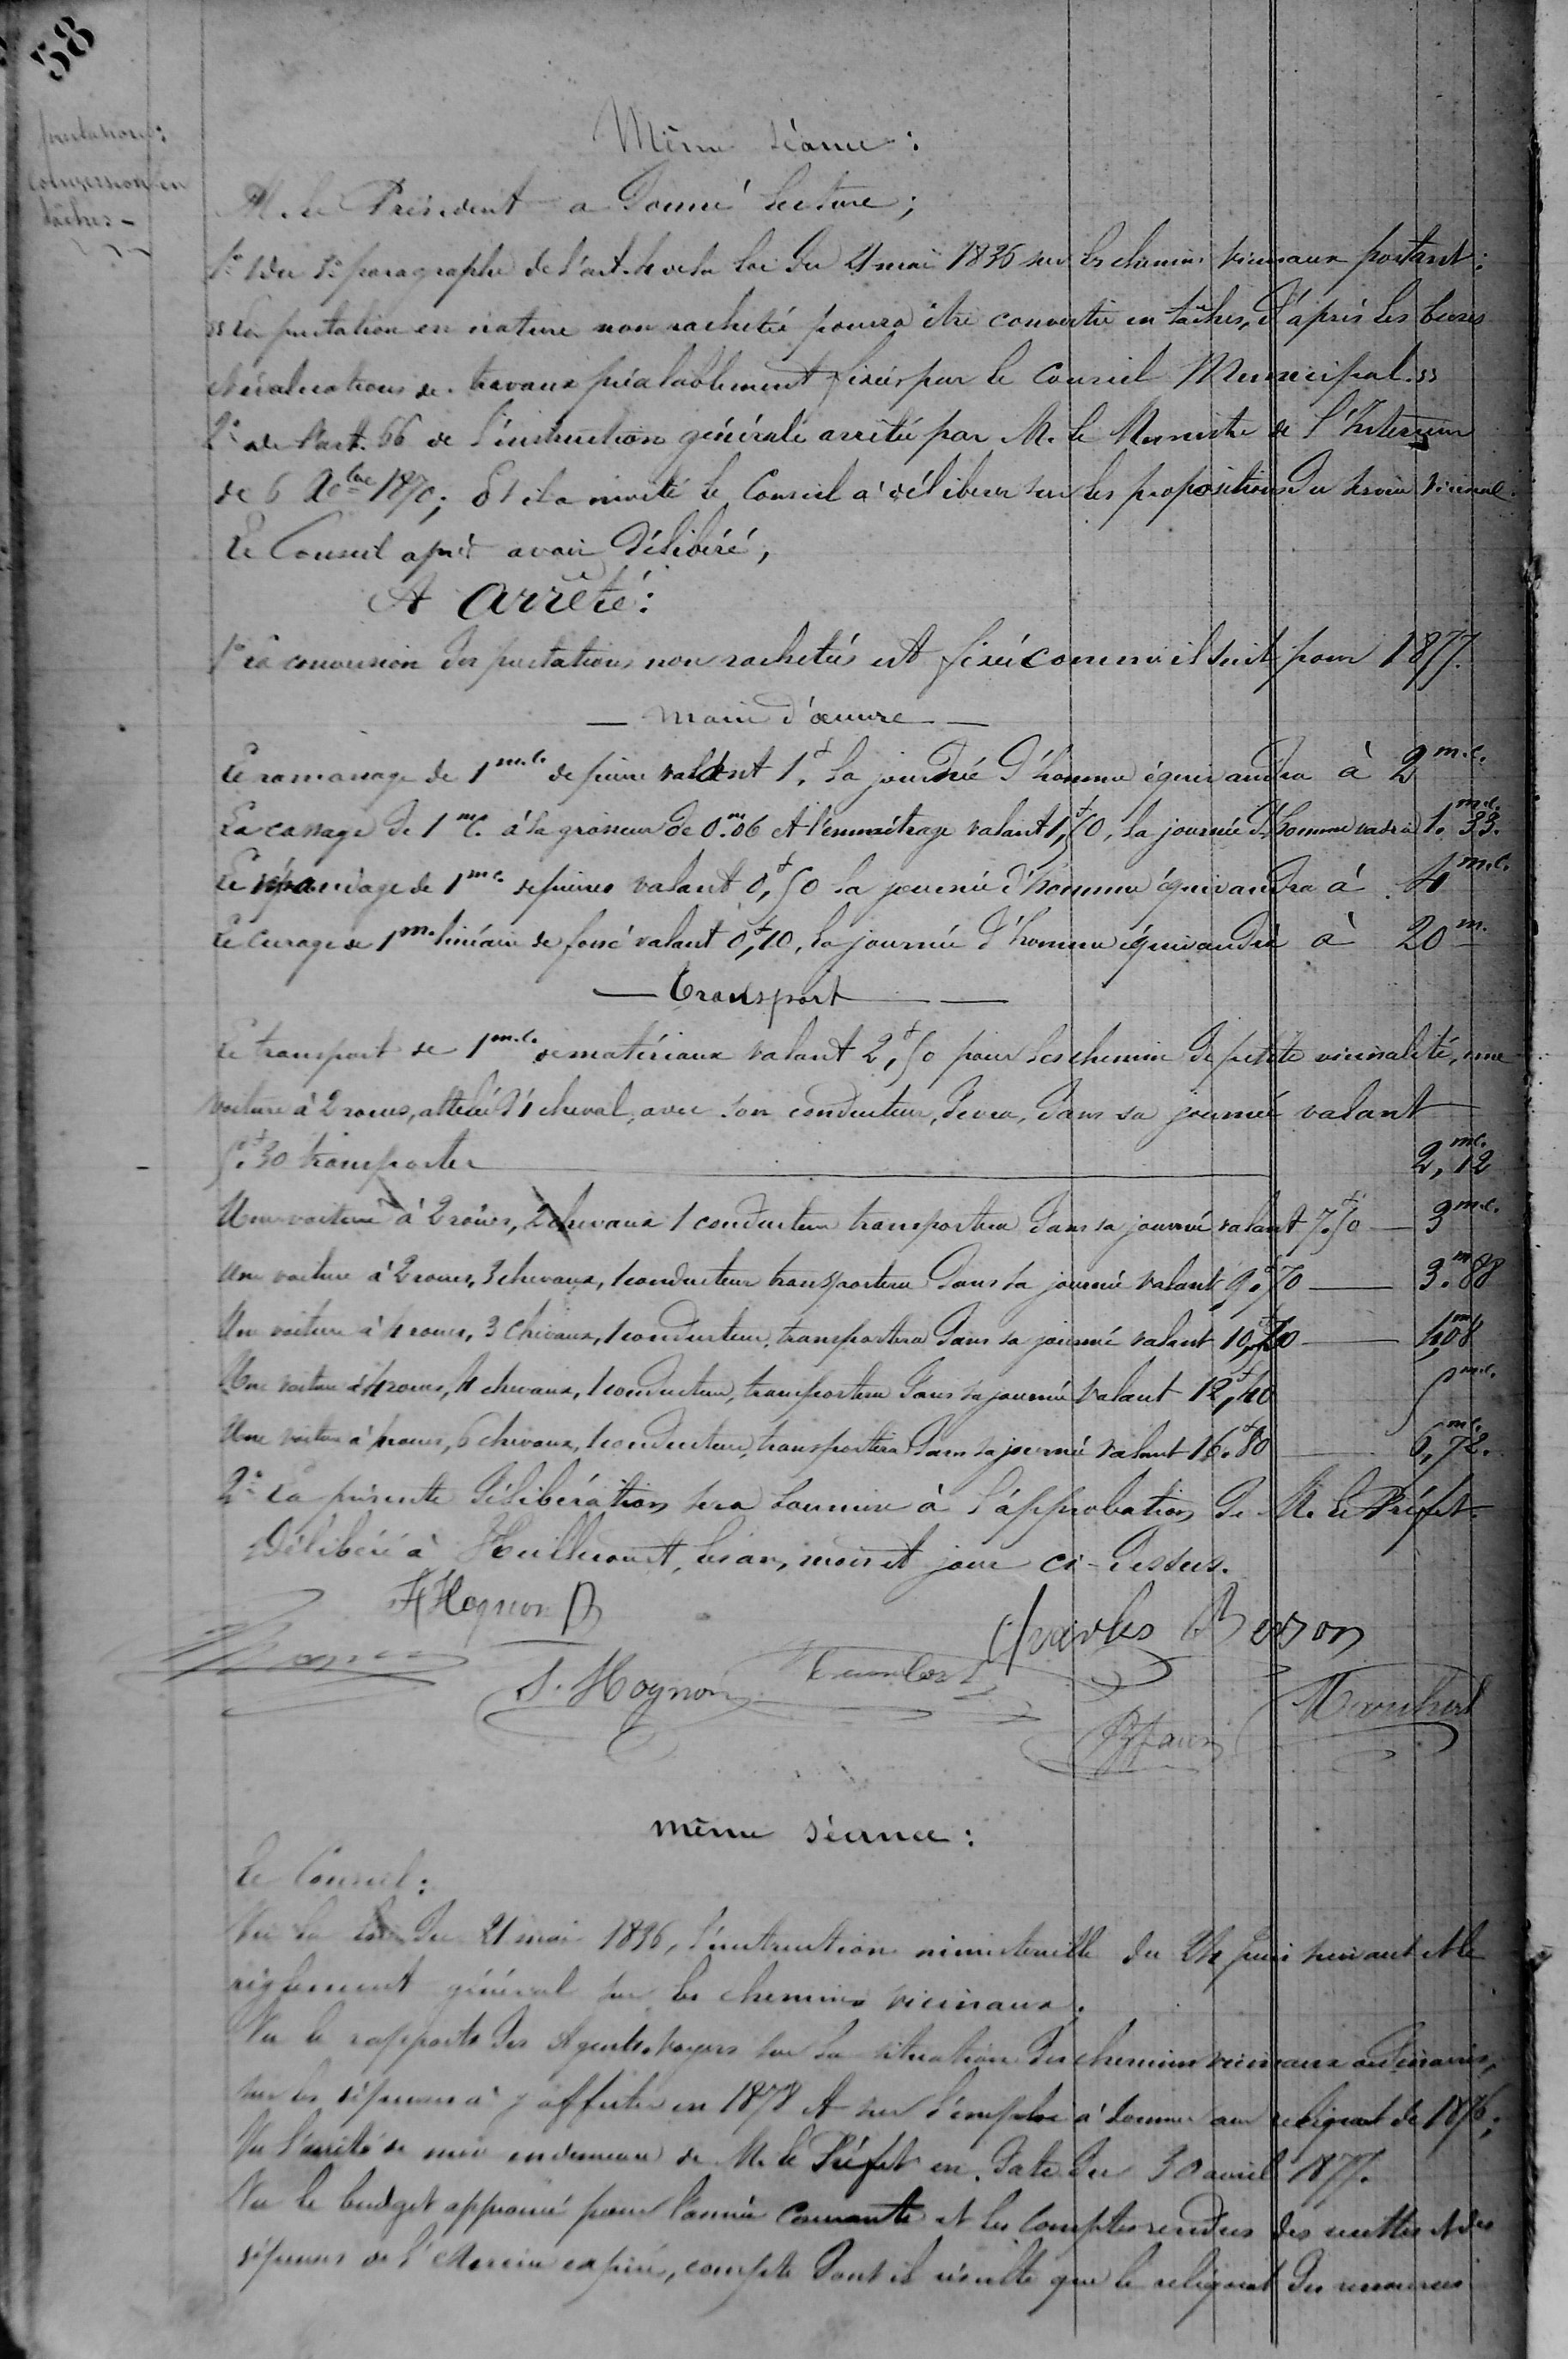 58
prestations:
Conversion en
tâches -
Même séance:
M. le Président a donné lecture;
1° du 3e paragraphe de l'art. 4 de la loi du 21 mai 1836 sur les chemins vicinaux portant:
« La prestation en nature non rachetée pourra être convertie en tâches, d'après les bases
et évaluations de travaux préalablement fixées par le Conseil Municipal. »
2° de l'art. 66 de l'instruction générale arrêtée par M. le Ministre de l'Intérieur
de 6 Xbre 1870; Et il a invité le Conseil à délibérer sur les propositions du service vicinal.
Le Conseil après avoir délibéré,
A arrêté:
1° La conversion des prestations non rachetées est fixée comme il suit pour 1877.
— main d'œuvre —
Le ramassage de 1 m.c. de pierre valant 1f, la journée d'homme équivaudra à 2 m.c.
Le cassage de 1 m.c. à la grosseur de 0.m06 et l'emmétrage valant 1f,50, la journée d'homme vaudra 1.33 m.c.
Le répandage de 1 m.c. de pierres valant 0f,50 la journée d'homme équivaudra à 4 m.c.
Le curage de 1 m. linéaire de fossé valant 0f,10, la journée d'homme équivaudra à 20 m.
— Transport —
Le transport de 1 m.c. de matériaux valant 2f,50 pour les chemins de petite vicinalité, une
voiture à 2 roues, attelée d'1 cheval, avec son conducteur, devra, dans sa journée valant
5f.30 transporter 2,12 m.c.
Une voiture à 2 roues, 2 chevaux 1 conducteur transportera dans sa journée valant 7f.50 — 3 m.c.
Une voiture à 2 roues, 3 chevaux, 1 conducteur transportera dans sa journée valant 9f.70 — 3.m88
Une voiture à 4 roues, 3 chevaux, 1 conducteur, transportera dans sa journée valant 10f,20 — 4,m08
Une voiture à 4 roues, 4 chevaux, 1 conducteur, transportera dans sa journée valant 12f,40 5 m.c.
Une voiture à 4 roues, 6 chevaux, 1 conducteur, transportera dans sa journée valant 16f.80 — 6,72 m.c.
2° La présente délibération sera soumise à l'approbation de M. le Préfet.
Délibéré à Heillecourt, les an, mois et jour ci-dessus.
H Hognon
Charles Besson
S. Hognon
même séance:
Le Conseil:
Vu la loi du 21 mai 1836, l'instruction ministérielle du 24 juin suivant et le
règlement général sur les chemins vicinaux.
Vu le rapports des Agents-voyers sur la situation des chemins vicinaux ordinaires,
sur les dépenses à y affecter en 1878 et sur l'emploi à donner au reliquat de 1876;
Vu l'arrêté de mise en demeure de M. le Préfet en date du 30 avril 1877.
Vu le budget approuvé pour l'année courante et les comptes rendus des recettes et des
dépenses de l'exercice expiré, compte dont il résulte que le reliquat des ressources